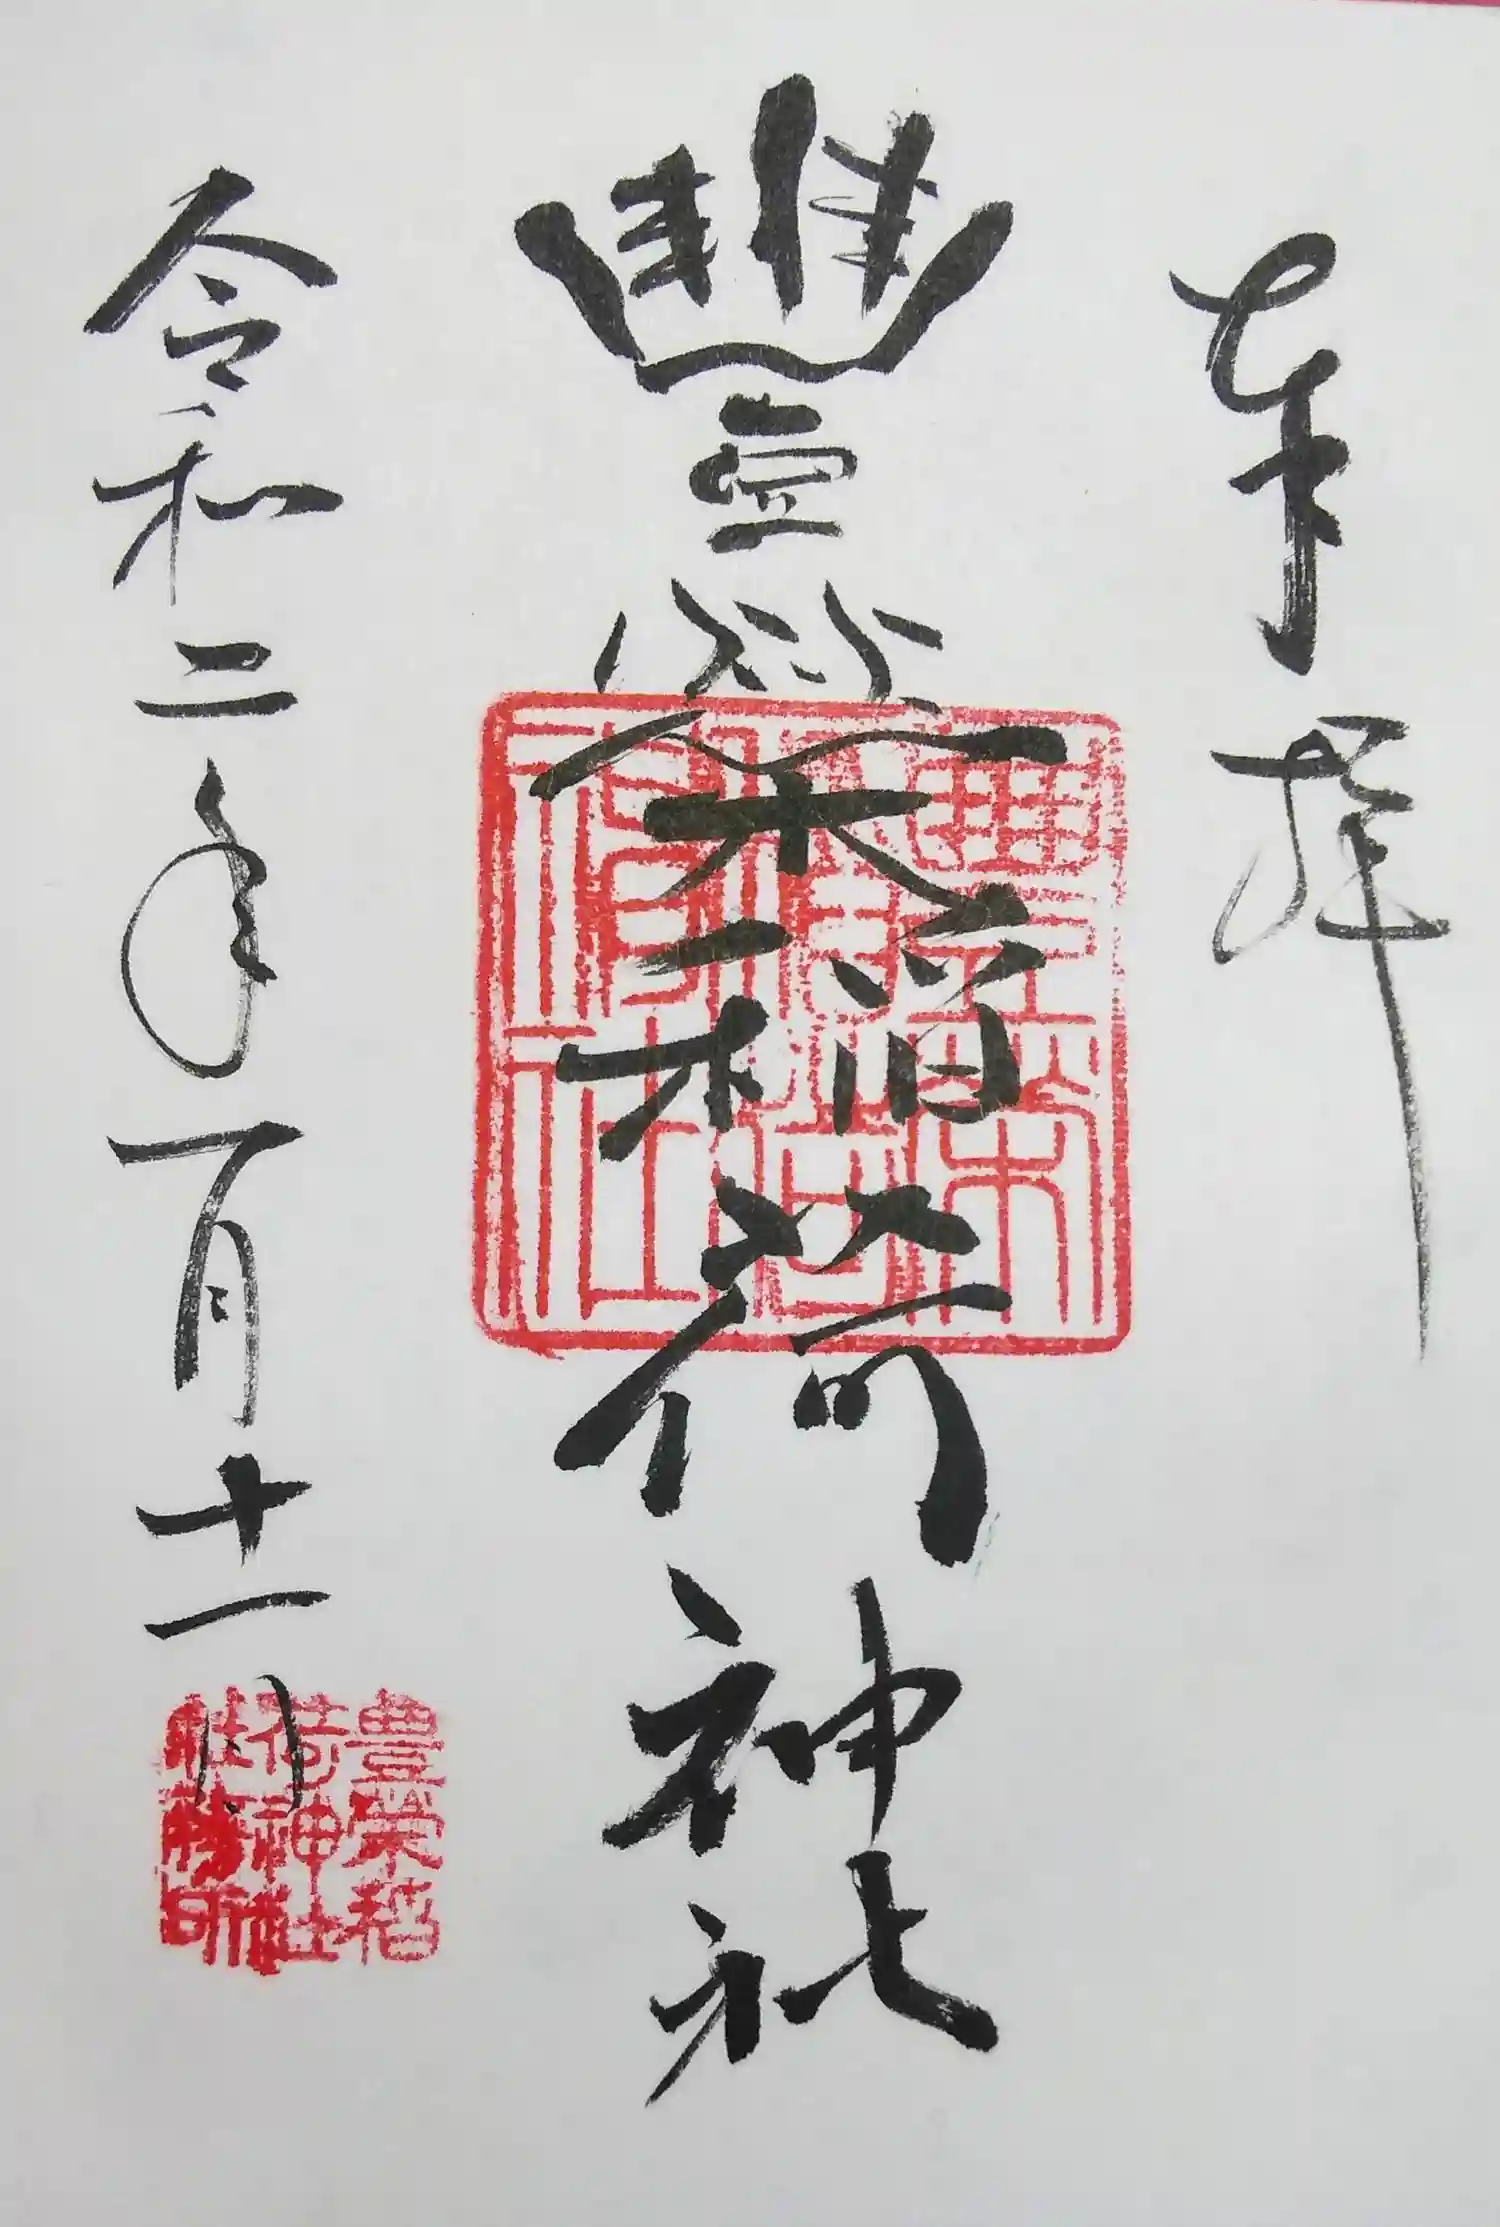 奉拝
豐榮稲荷神社
豊榮
稲荷
神社
令和二年一月十一日
豊榮稲
荷神社
社務所